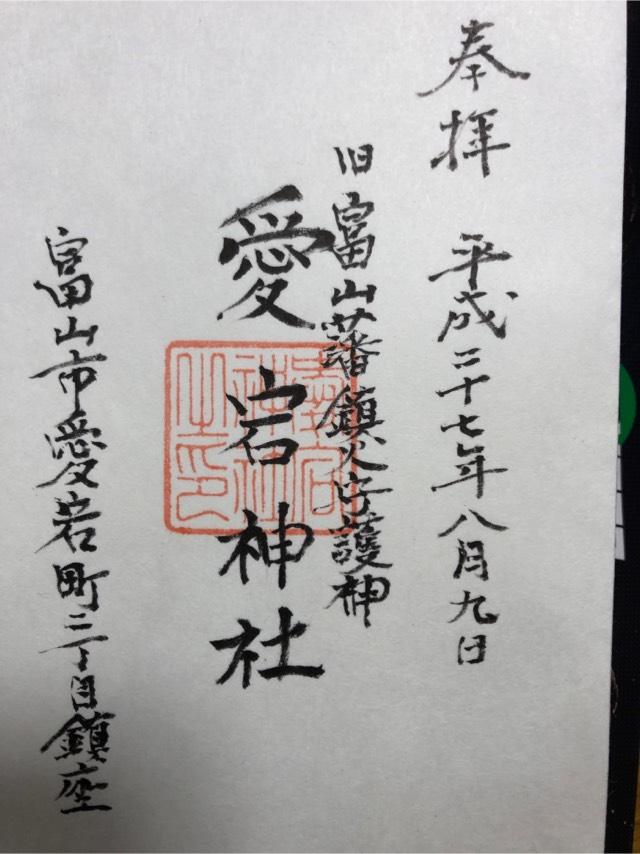 奉拝 平成二十七年八月九日
旧富山藩鎮火守護神
愛宕神社
富山市愛宕町二丁目鎮座
愛宕神社之印